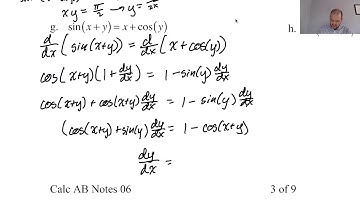 xy = π/2 → y =
g. sin(x+y)=x+cos(y)
h.
d/dx (sin(x+y)) = d/dx (x + cos(y))
cos(x+y)(1 + dy/dx) = 1 - sin(y) dy/dx
cos(x+y) + cos(x+y) dy/dx = 1 - sin(y) dy/dx
(cos(x+y) + sin(y)) dy/dx = 1 - cos(x+y)
dy/dx =
Calc AB Notes 06 3 of 9